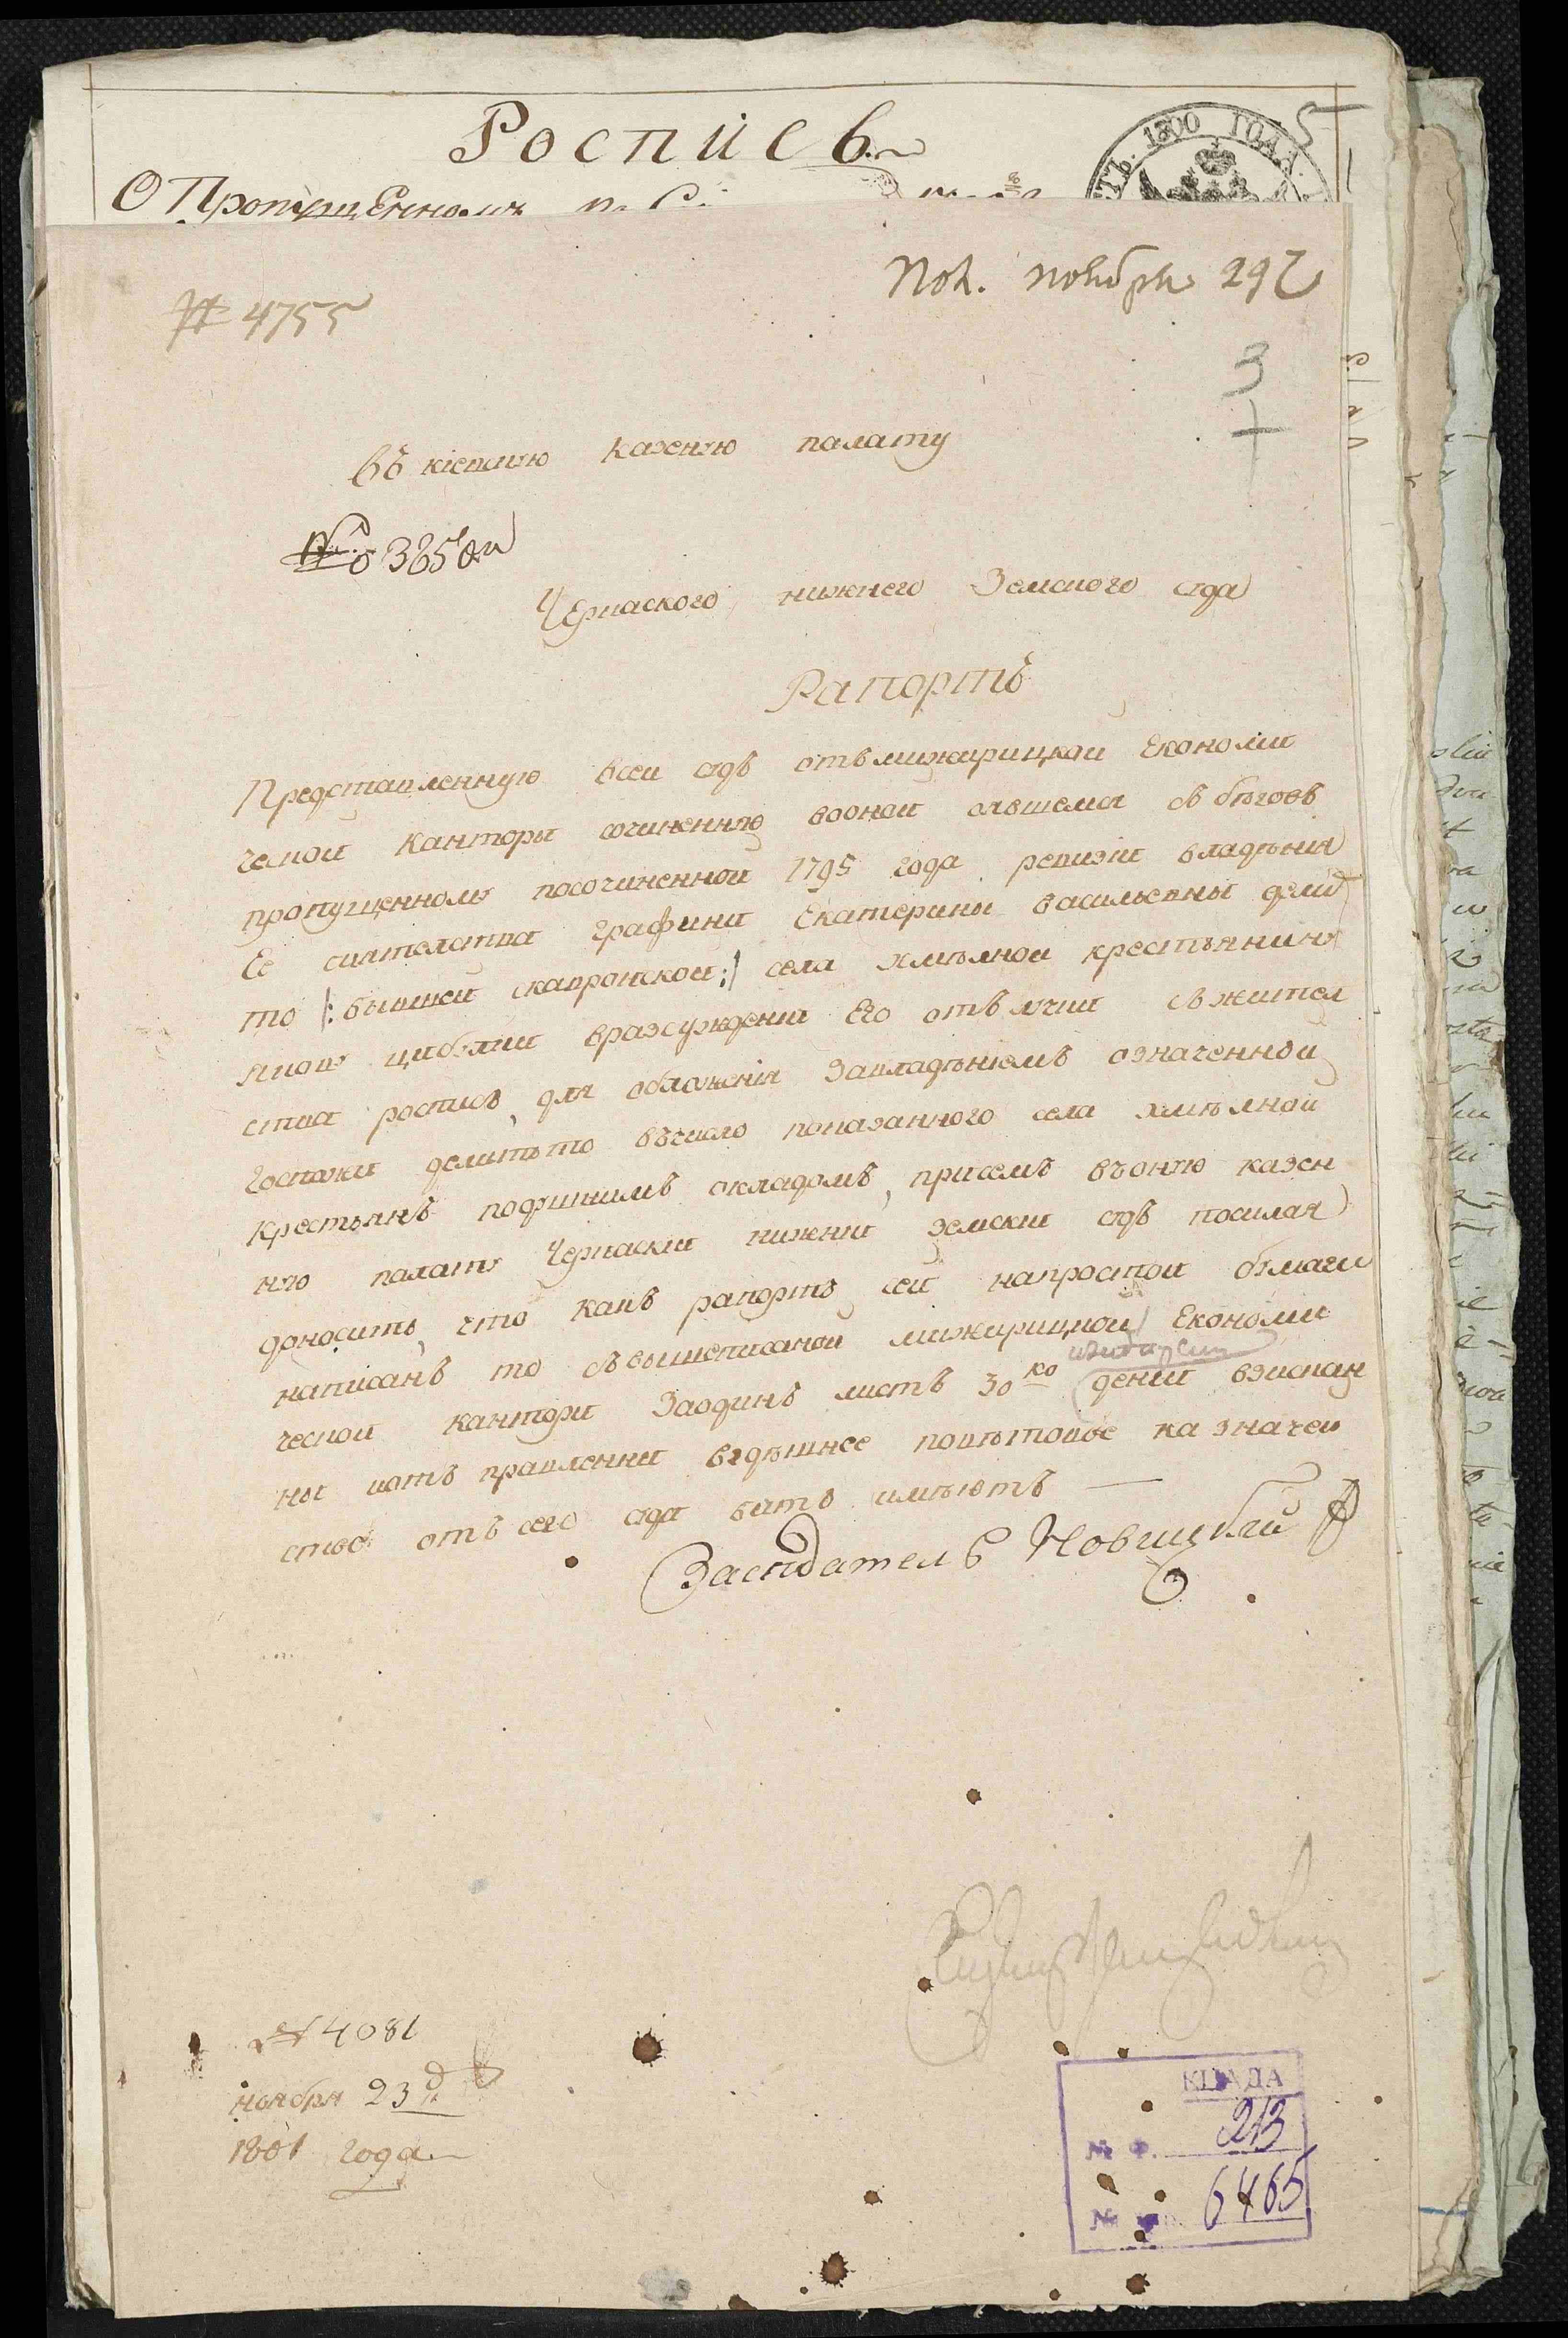 Роспись
О Пропущенномъ
ТЬ. 1800 ГОДА.
5
Пол. ноября 29
№ 4755
3
въ киевскую казеную палату
№ 3650
Черкаского нижнего Земского суда
Рапортъ
Представленную всей судъ отъ мижирицкой Економи
ческой Канторы сочиненную вооной явшемся съ бѣговъ
пропущенномъ посочиненной 1795 года ревизіи владѣнія
Ее сиятелства графини Екатерины васильевны дели
то /: бывшей скавронской :/ села хмѣлной крестьянину
цибулки вразсуждении Его отълучки съ жител
ства роспись для обложения завладѣниемъ означенной
госпожи делитьто въ число показанного села хмѣлной
крестьянъ подушнимъ окладомъ, присемъ въ оную казен
ную палату Черкаский нижний земский судъ посилая
доноситъ, что какъ рапортъ сей напростой бумаги
написанъ то съ вышеписаной мижирицкой Економи
ческой кантори заодинъ листъ 30 ко денги взискан
ны иотъ правленни въздѣшнее повѣтовое казначей
ство отъ сего суда бить имѣютъ —
Заседатель Новицкий
№ 4081
ноября 23 д
1801 года
ЦДІА
№ Ф. 213
№ 6465